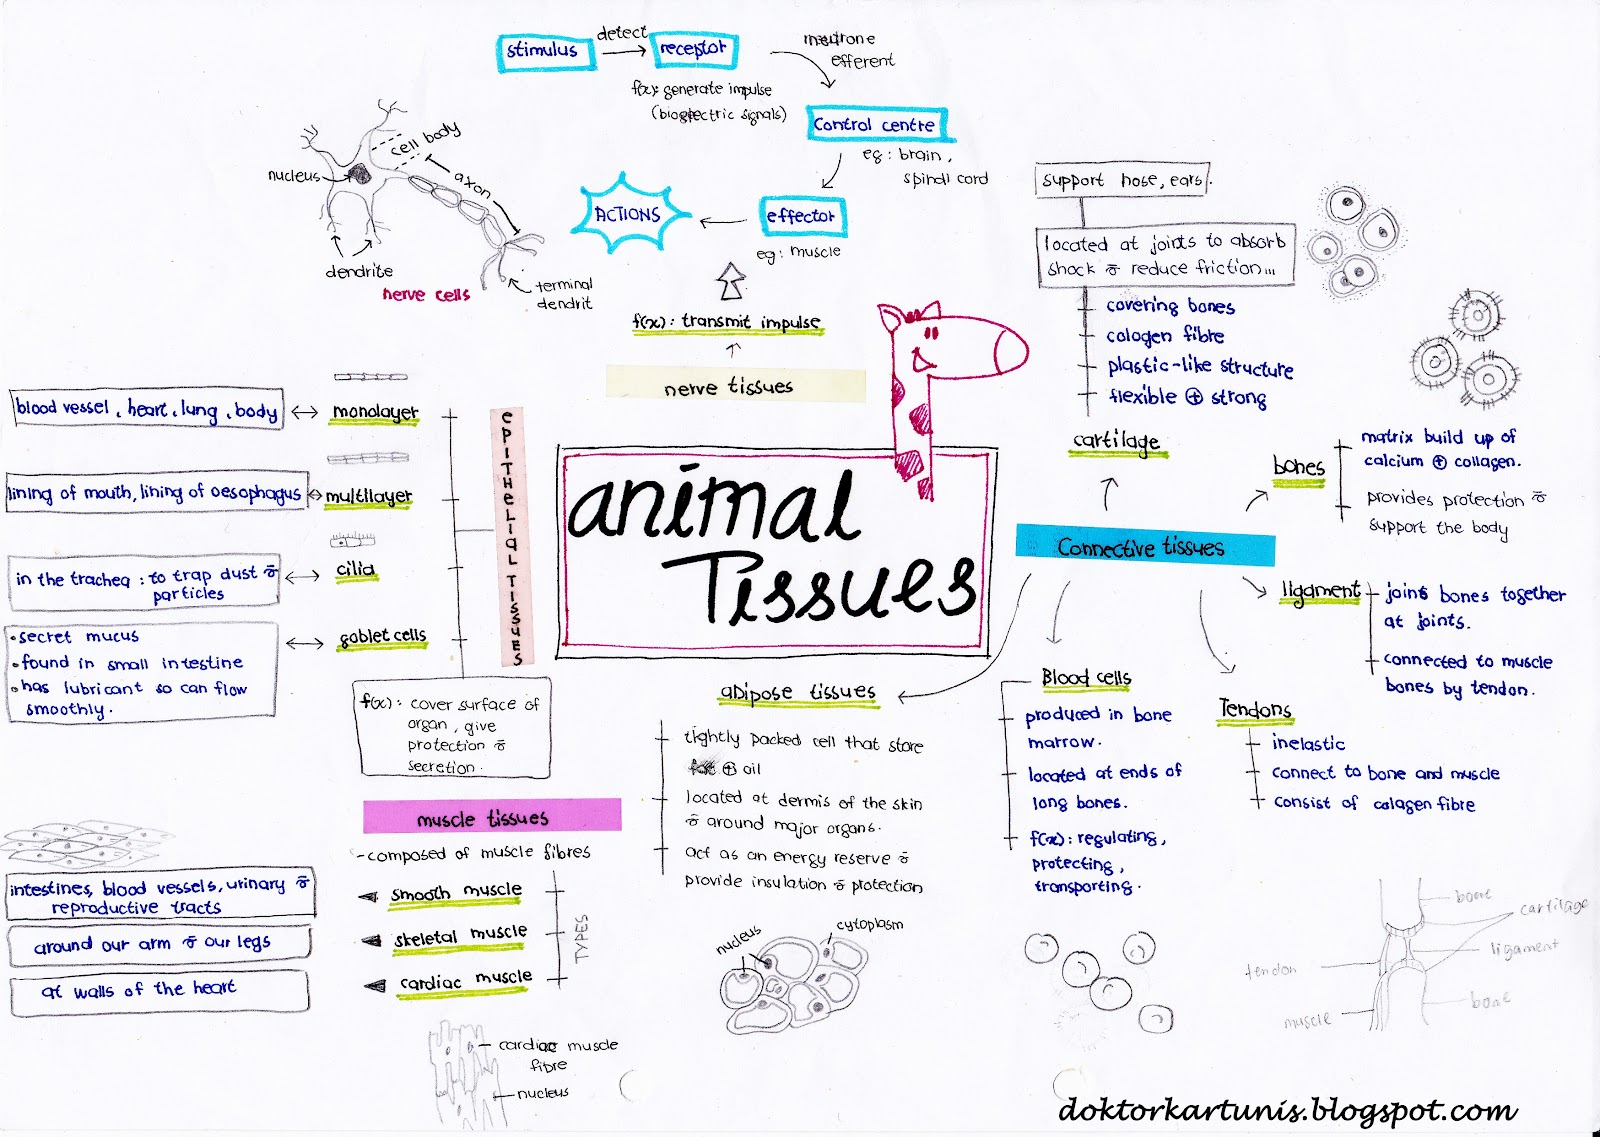 stimulus
detect
receptor
neutrone
efferent
f(x): generate impulse
(bioelectric signals)
Control centre
eg: brain,
spindl cord
effector
eg: muscle
ACTIONS
cell body
nucleus
axon
dendrite
nerve cells
terminal
dendrit
f(x): transmit impulse
nerve tissues
animal
Tissues
epithelial tissues
monolayer
blood vessel, heart, lung, body
multilayer
lining of mouth, lining of oesophagus
cilia
in the trachea: to trap dust &
particles
goblet cells
• secret mucus
• found in small intestine
• has lubricant so can flow
smoothly.
f(x): cover surface of
organ, give
protection &
secretion.
muscle tissues
-composed of muscle fibres
smooth muscle
skeletal muscle
cardiac muscle
TYPES
intestines, blood vessels, urinary &
reproductive tracts
around our arm & our legs
at walls of the heart
cardiac muscle
fibre
nucleus
adipose tissues
tightly packed cell that store
fat ⊕ oil
located at dermis of the skin
& around major organs.
act as an energy reserve &
provide insulation & protection
nucleus
cytoplasm
Connective tissues
cartilage
support nose, ears.
located at joints to absorb
shock & reduce friction...
covering bones
cologen fibre
plastic-like structure
flexible ⊕ strong
bones
matrix build up of
calcium ⊕ collagen.
provides protection &
support the body
ligament
joins bones together
at joints.
connected to muscle
bones by tendon.
Tendons
inelastic
connect to bone and muscle
consist of colagen fibre
Blood cells
produced in bone
marrow.
located at ends of
long bones.
f(x): regulating,
protecting,
transporting.
bone
cartilage
ligament
tendon
bone
muscle
doktorkartunis.blogspot.com